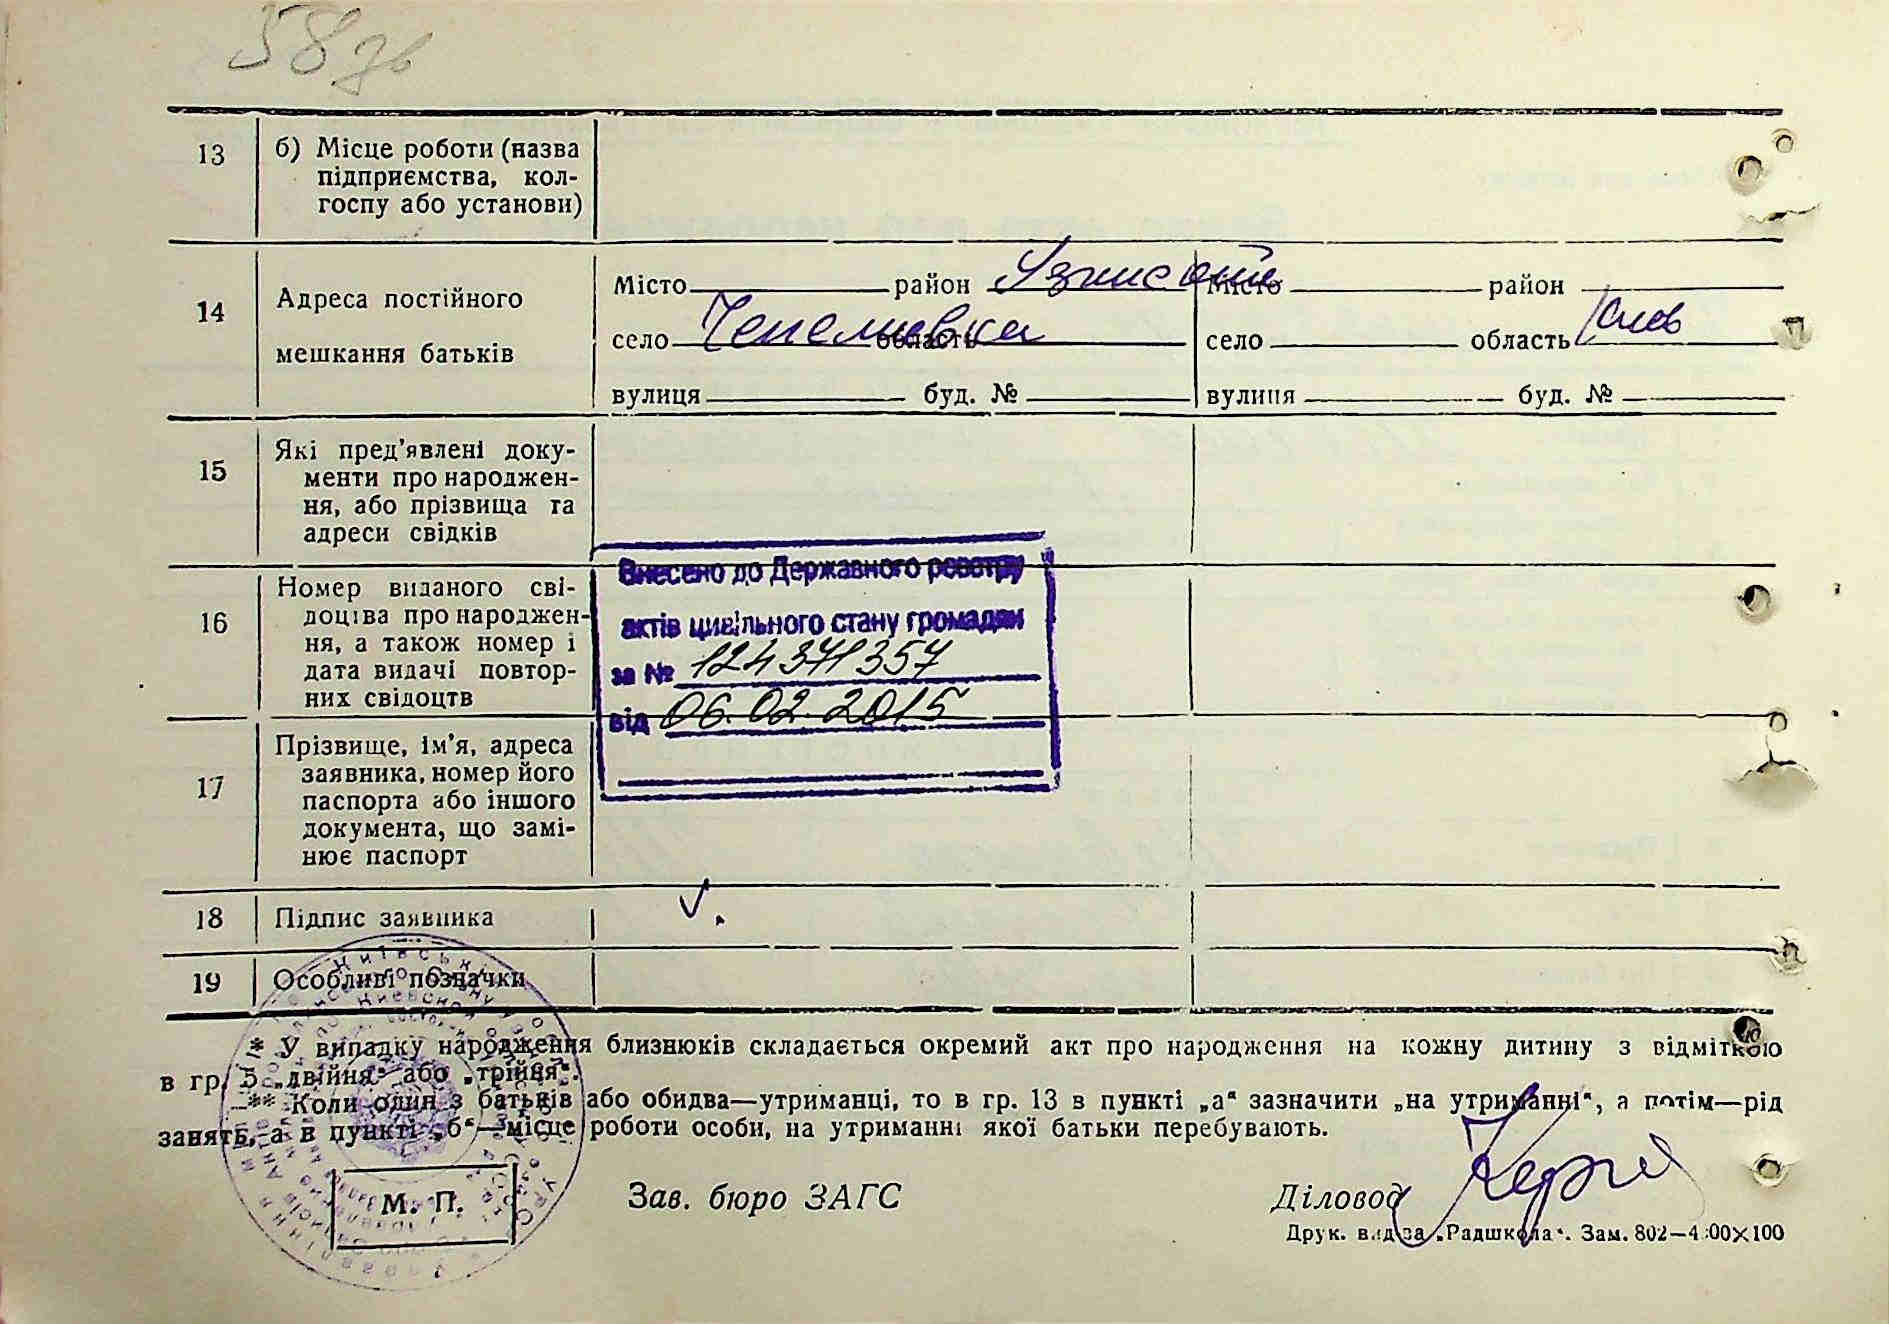 58 зв
13 б) Місце роботи (назва
підприємства, кол-
госпу або установи)
14 Адреса постійного
мешкання батьків
Місто район місто район
село Чепелиевка область село область Киев
вулиця буд. № вулиця буд. №
15 Які пред'явлені доку-
менти про народжен-
ня, або прізвища та
адреси свідків
16 Номер виданого сві-
доцтва про народжен-
ня, а також номер і
дата видачі повтор-
них свідоцтв
Внесено до Державного реєстру
актів цивільного стану громадян
за № 124371357
від 06.02.2015
17 Прізвище, ім'я, адреса
заявника, номер його
паспорта або іншого
документа, що замі-
нює паспорт
18 Підпис заявника
19 Особливі позначки
* У випадку народження близнюків складається окремий акт про народження на кожну дитину з відміткою
в гр. 5 „двійня“ або „трійня“.
** Коли один з батьків або обидва—утриманці, то в гр. 13 в пункті „а“ зазначити „на утриманні“, а потім—рід
занять, а в пункті „б“—місце роботи особи, на утриманні якої батьки перебувають.
М. П.
Зав. бюро ЗАГС
Діловод
Друк. вид-ва „Радшкола“. Зам. 802—4000×100